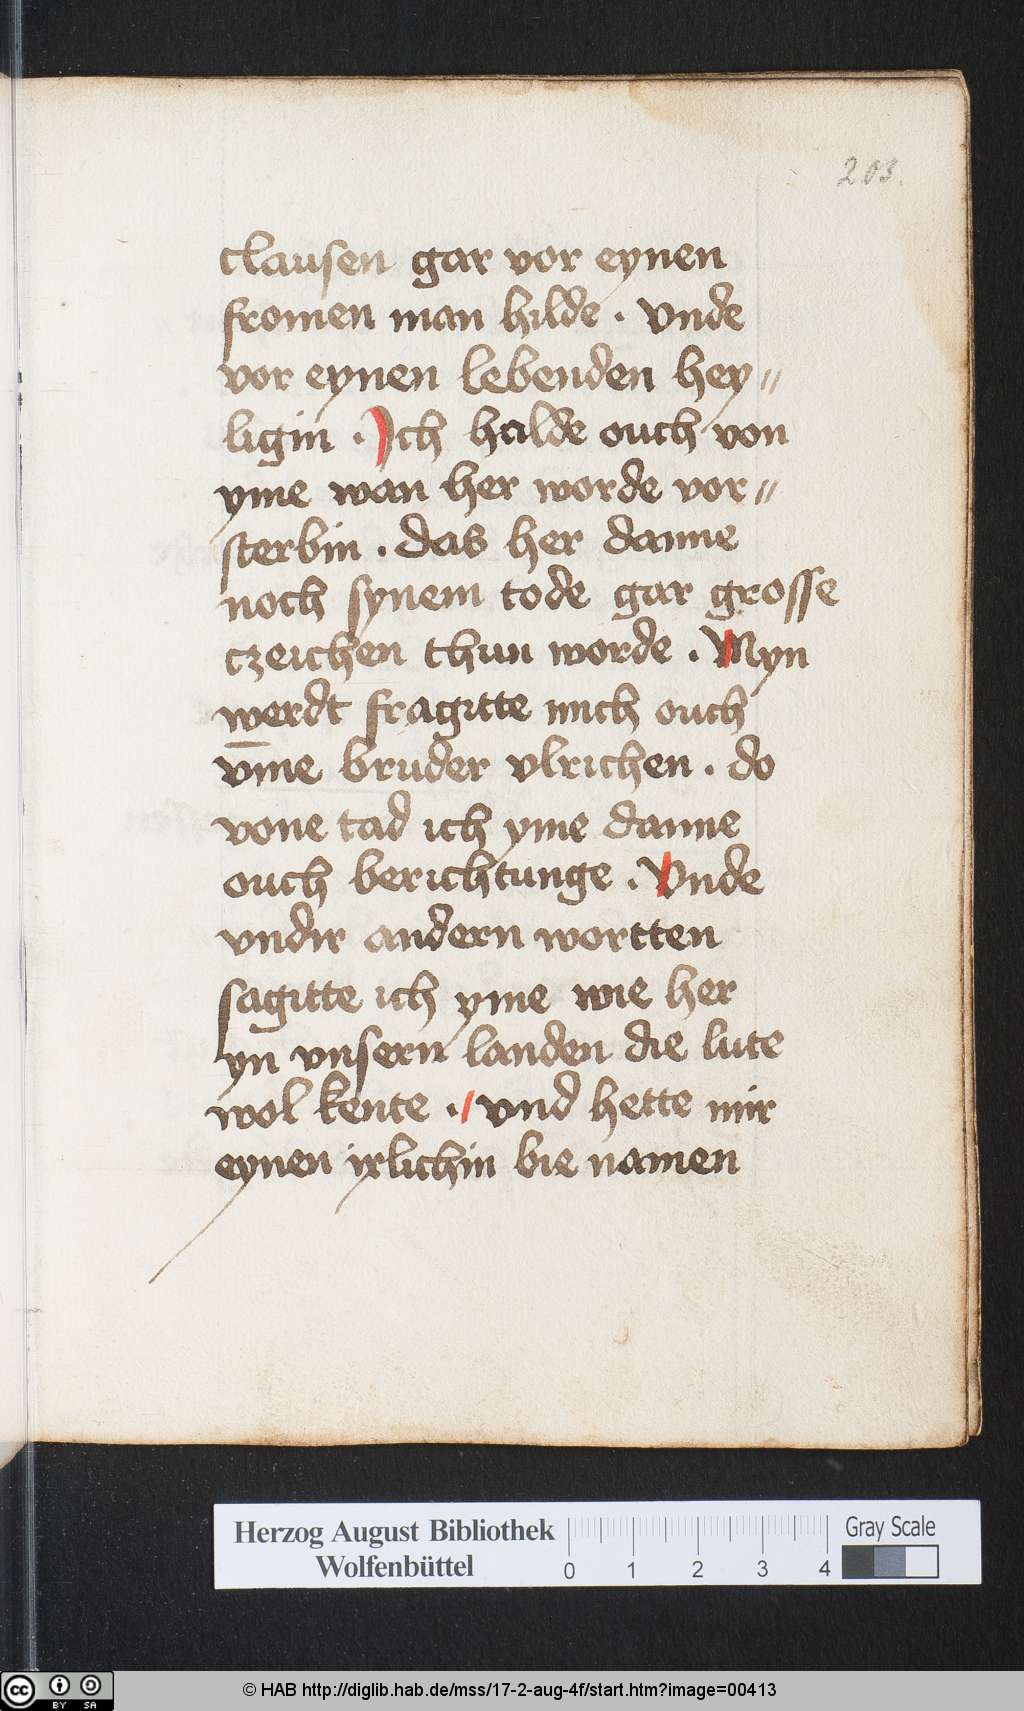 203.
clausen gar vor eynen
fromen man hilde . Vnde
vor eynen lebenden hey〃
ligin . Ich halde ouch von
yme wan her worde vor〃
sterbin . das her danne
noch synem tode gar grosse
czeichen thun worde . Myn
werdt fragitte mich ouch
vm̄e bruder vlrichen . do
vone tad ich yme danne
ouch berichtunge . Vnde
vndir andern wortten
sagitte ich yme wie her
yn vnsern landen die lute
wol kente . vnd hette mir
eynen irlichin bie namen
Herzog August Bibliothek
Wolfenbüttel
0 1 2 3 4
Gray Scale
cc BY SA
© HAB http://diglib.hab.de/mss/17-2-aug-4f/start.htm?image=00413